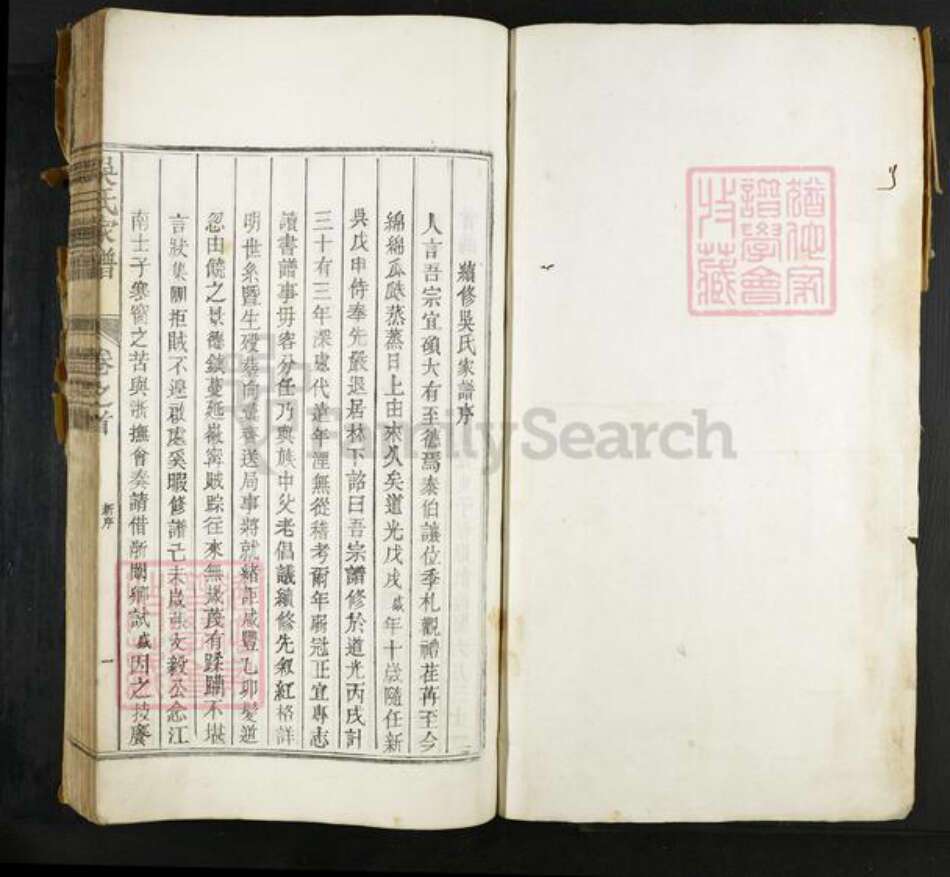 續修吳氏家譜序
人言吾宗宜碩大有至德焉泰伯讓位季札觀禮荏苒至今
綿綿瓜瓞蒸蒸日上由來久矣道光戊戌盛年十歲隨任新
吳戊申侍奉先嚴退居林下諮曰吾宗譜修於道光丙戌計
三十有三年深處代遠年湮無從稽考爾年弱冠正宜專志
讀書譜事毋容分任乃與族中父老倡議續修先叙紅格詳
明世系暨生歿送局事將就緒詎咸豐乙卯髮逆
忽由饒之景德鎮蔓延徽寧賊踪往來無歲蔑有蹂躪不堪
言狀集團拒賊不遑啟處奚暇修譜己未歲張文毅公念江
南士子寒窗之苦與浙撫會奏請借浙闈鄉試盛因之技癢
吳氏家譜
卷之首
新序
一
猶他家
譜學會
收藏
FamilySearch